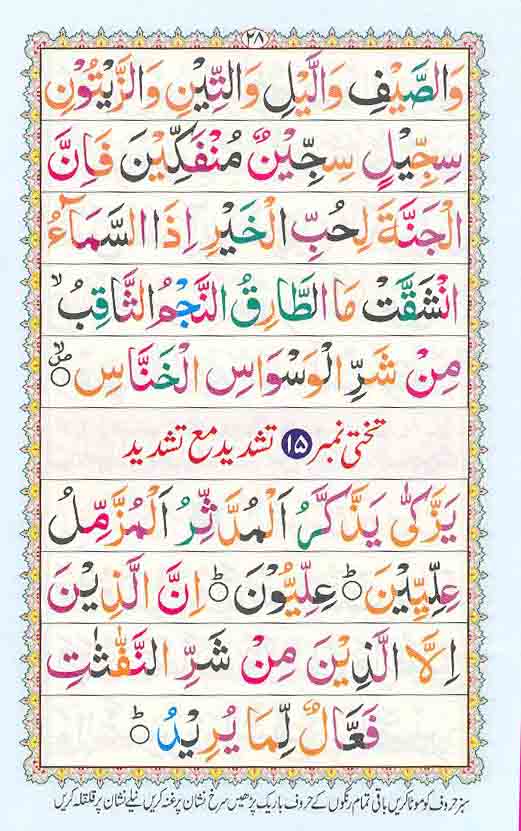 ٢٨
وَالصَّيْفِ وَالَّيْلِ وَالتِّيْنِ وَالزَّيْتُوْنِ
سِجِّيْلٍ سِجِّيْنٌ مُنْفَكِّيْنَ فَاِنَّ
الْجَنَّةَ لِحُبِّ الْخَيْرِ اِذَا السَّمَآءُ
انْشَقَّتْ مَا الطَّارِقُ النَّجْمُ الثَّاقِبُ ۙ
مِنْ شَرِّ الْوَسْوَاسِ الْخَنَّاسِ
تختی نمبر ١٥ تشدید مع تشدید
يَزَّكّٰى يَذَّكَّرُ اَلْمُدَّثِّرُ اَلْمُزَّمِّلُ
عِلِّيِّيْنَ ؕ عِلِّيُّوْنَ ؕ اِنَّ الَّذِيْنَ
اِلَّا الَّذِيْنَ مِنْ شَرِّ النَّفّٰثٰتِ
فَعَّالٌ لِّمَا يُرِيْدُ ؕ
سبز حروف کو موٹا کریں باقی تمام رنگوں کے حروف باریک پڑھیں سرخ نشان پر غنہ کریں نیلے نشان پر قلقلہ کریں